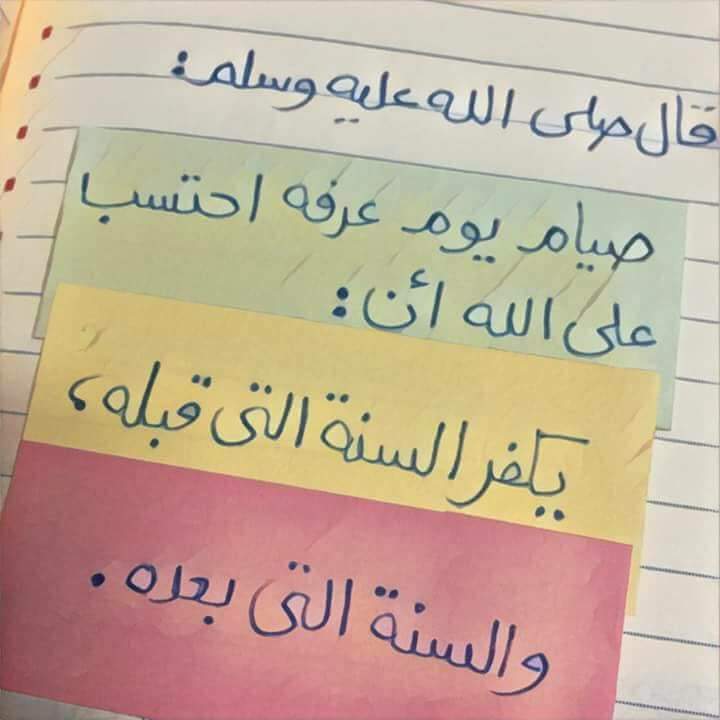 قال صلى الله عليه وسلم:
صيام يوم عرفه احتسب
على الله أن:
يكفر السنة التى قبله،
والسنة التى بعده.